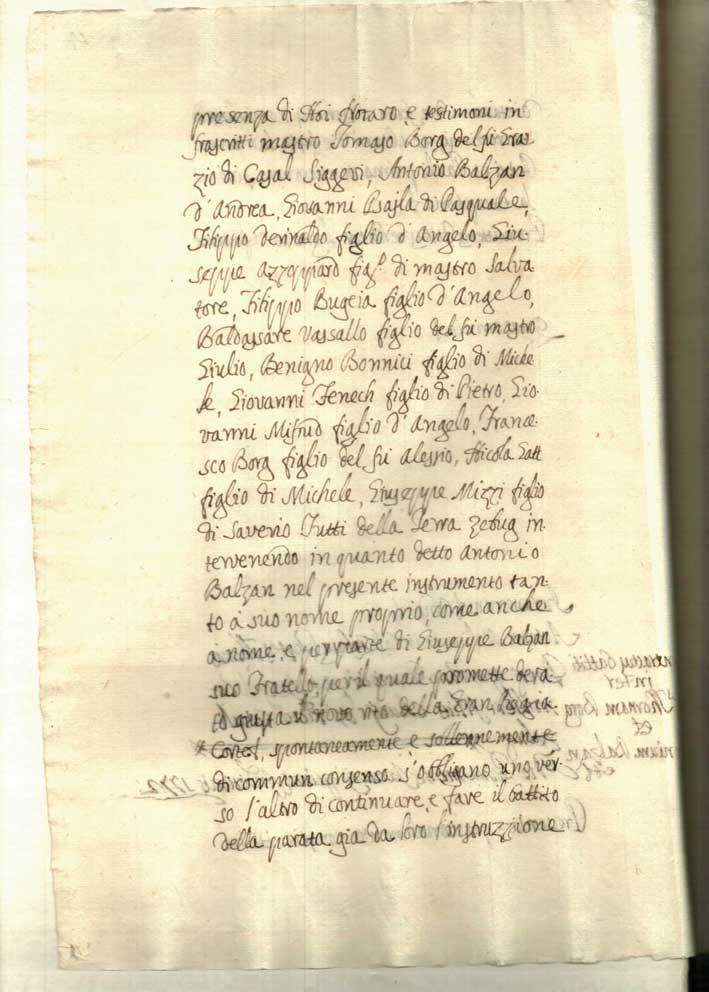 presenza di Noi Notaro, e testimoni in=
frascritti mastro Tomaso Borg del fù Gra=
zio di Casal Siggevi, Antonio Balzan
d'Andrea, Giovanni Psajla di Pasquale,
Filippo Derinaldo figlio d'Angelo, Giu=
seppe Azzoppard fig.º di mastro Salva
tore, Filippo Bugeia figlio d'Angelo,
Baldassare Vassallo figlio del fù mastro
Giulio, Benigno Bonnici figlio di Miche
le, Giovanni Fenech figlio di Pietro, Gio
vanni Mifsud figlio d'Angelo, France
sco Borg figlio del fù Alessio, Nicola Gatt
figlio di Michele, Giuseppe Mizzi figlio
di Saverio Tutti della Terra Zebug in=
tervenendo in quanto detto Antonio
Balzan nel presente instrumento tan=
to à suo nome proprio, come anche
à nome, e per parte di Giuseppe Balzan
suo Fratello, per il quale promette de rà
to giusta il novo rito della Gran
spontaneamente e sollennemente
di commun consenso s'obligano uno ver=
so l'altro di continuare, e fare il battito
della parata già da loro l'instruzzione